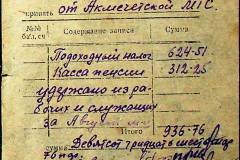 принять от Акмечетской МТС.
№№ бал. сч.
Содержание записи
Сумма
Подоходный налог 624-51
Касса пенсии 312-25
удержано из ра-
бочих и служащих
за Август м-ц
Итого 936-76
сумма Девятсот тридцать шесть
76 коп.